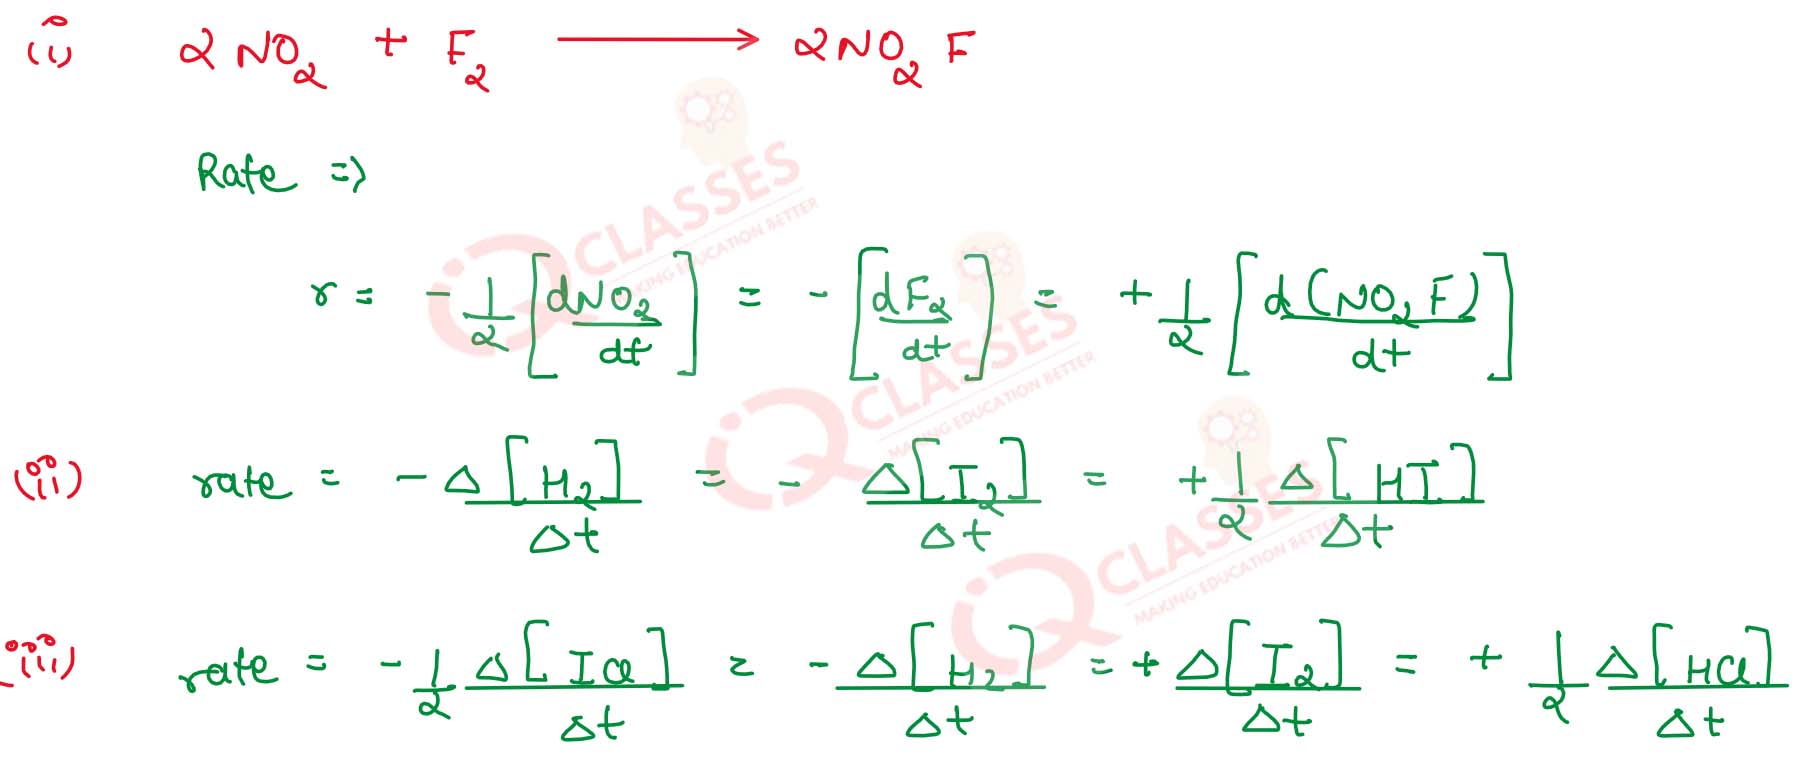 (i) 2NO₂ + F₂ ⟶ 2NO₂F
Rate ⇒
r = -1/2 [dNO₂/dt] = -[dF₂/dt] = +1/2 [d(NO₂F)/dt]
(ii) rate = -Δ[H₂]/Δt = -Δ[I₂]/Δt = +1/2 Δ[HI]/Δt
(iii) rate = -1/2 Δ[ICl]/Δt = -Δ[H₂]/Δt = +Δ[I₂]/Δt = +1/2 Δ[HCl]/Δt
iQ CLASSES
MAKING EDUCATION BETTER
iQ CLASSES
MAKING EDUCATION BETTER
iQ CLASSES
MAKING EDUCATION BETTER